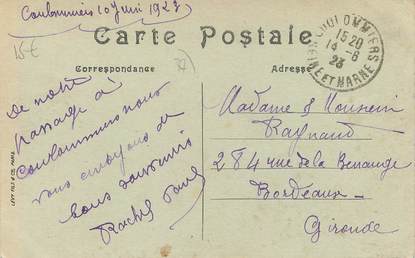 Coulommiers 10 Juin 1923
15€
Carte Postale
Correspondance
Adresse
COULOMMIERS
15 20
14 - 6
23
SEINE ET MARNE
De notre
passage à
Coulommiers nous
vous envoyons de
bons souvenirs
Rachel
Madame & Monsieur
Raynaud
284 rue de la Benauge
Bordeaux
Gironde
LÉVY FILS & Cie, PARIS